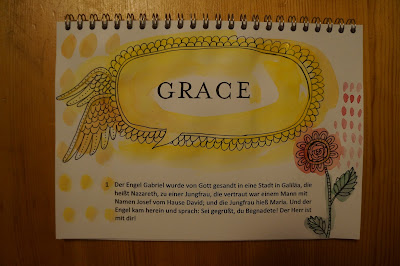 GRACE
1 Der Engel Gabriel wurde von Gott gesandt in eine Stadt in Galiläa, die
heißt Nazareth, zu einer Jungfrau, die vertraut war einem Mann mit
Namen Josef vom Hause David; und die Jungfrau hieß Maria. Und der
Engel kam herein und sprach: Sei gegrüßt, du Begnadete! Der Herr ist
mit dir!